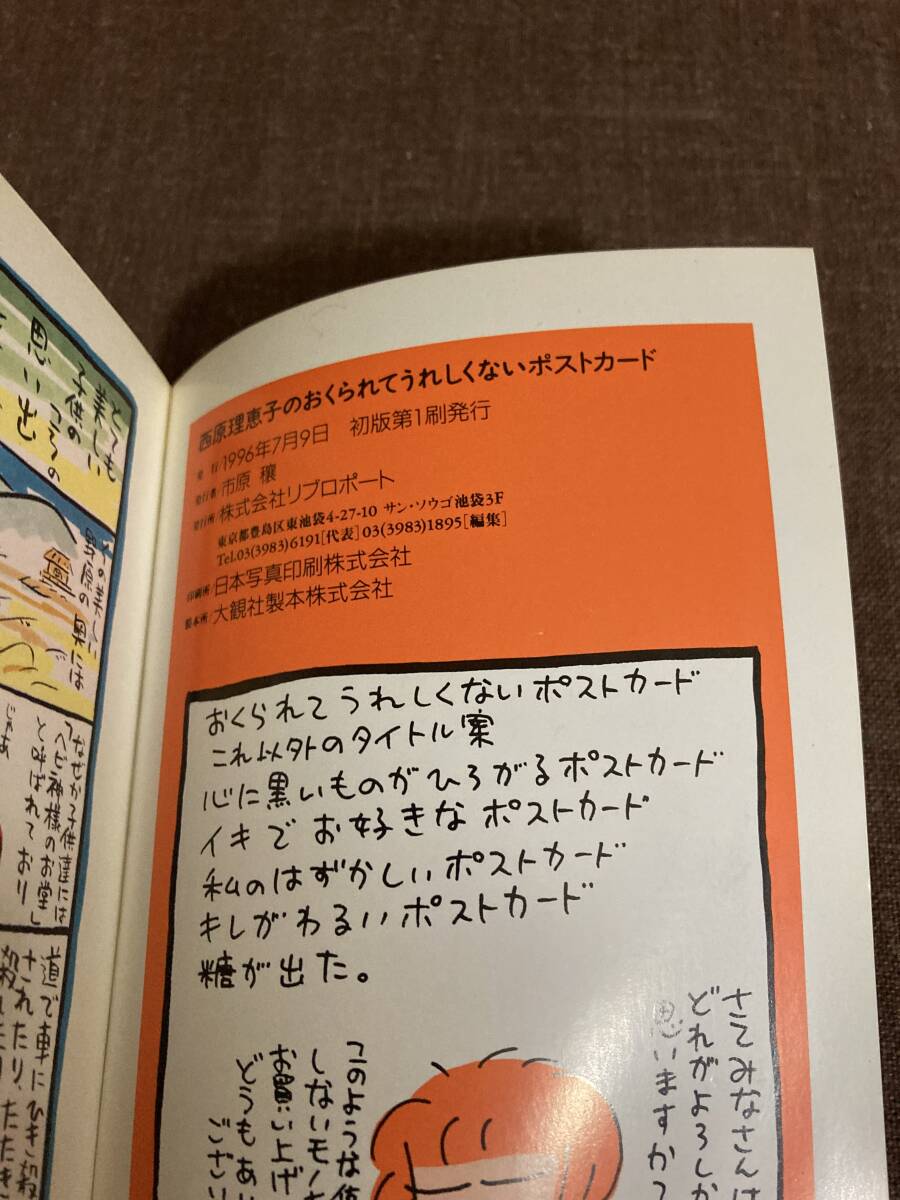 西原理恵子のおくられてうれしくないポストカード
発 行/1996年7月9日 初版第1刷発行
発行者/市原 穰
発行所/株式会社リブロポート
東京都豊島区東池袋4-27-10 サン・ソウゴ池袋3F
Tel.03(3983)6191[代表]03(3983)1895[編集]
印刷所/日本写真印刷株式会社
製本所/大観社製本株式会社
おくられてうれしくないポストカード
これ以外のタイトル案
心に黒いものがひろがるポストカード
イキでお好きなポストカード
私のはずかしいポストカード
キしがわるいポストカード
糖が出た。
さてみなさんは
どれがよろしか
思いますかて
このような
しないモノを
お買い上げ
どうもあり
ござい
とても
美しい
子供の
ころの
思い出
その美しい
野原の奥には
なぜか子供達には
「ヘビ神様のお堂」
と呼ばれており
じゃあ
道で車にひき殺
されたり、
たたき